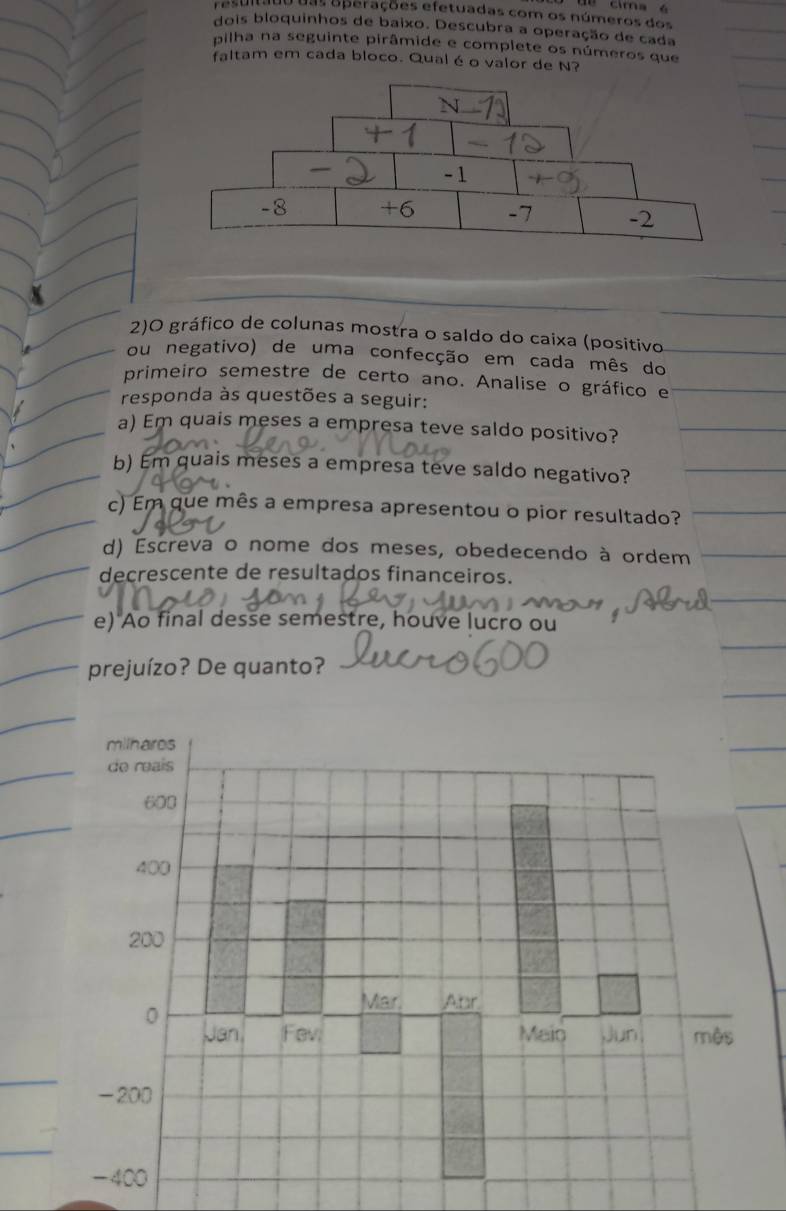 resultado das operações efetuadas com os números dos
dois bloquinhos de baixo. Descubra a operação de cada
pilha na seguinte pirâmide e complete os números que
faltam em cada bloco. Qual é o valor de N?
N -13
+1 -12
-2 -1 +9
-8 +6 -7 -2
2)O gráfico de colunas mostra o saldo do caixa (positivo
ou negativo) de uma confecção em cada mês do
primeiro semestre de certo ano. Analise o gráfico e
responda às questões a seguir:
a) Em quais meses a empresa teve saldo positivo?
Jan. Feve. Maio
b) Em quais meses a empresa teve saldo negativo?
Abr.
c) Em que mês a empresa apresentou o pior resultado?
Abr
d) Escreva o nome dos meses, obedecendo à ordem
decrescente de resultados financeiros.
Maio, jan, fev, jun, mar, Abril
e) Ao final desse semestre, houve lucro ou
prejuízo? De quanto? lucro 600
milhares
de reais
600
400
200
Mar. Abr.
0
Jan. Fev. Maio Jun. mês
-200
-400